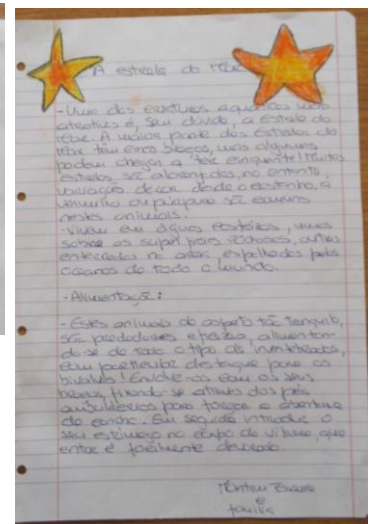 A estrela do mar
- Uma das criaturas aquáticas mais
atractivas é, sem dúvida, a Estrela do
Mar. A maior parte das Estrelas do
Mar têm cinco braços, mas algumas
podem chegar a ter cinquenta! Muitas
estrelas são alaranjadas, no entanto,
variações de cor desde o castanho, o
vermelho ou púrpura são comuns
nestes animais.
- Vivem em águas costeiras, umas
sobre as superfícies rochosas, outras
enterradas na areia, espalhadas pelos
oceanos de todo o mundo.
- Alimentação:
- Estes animais de aspeto tão tranquilo,
são predadores e alimentan-
do-se de todo o tipo de invertebrados,
com particular destaque para os
bivalves! com os seus
braços, fixando-se através dos pés
ambulacrários para forçar a abertura
da concha. Em seguida introduz o
seu estômago no corpo da vítima, que
então é facilmente devorada.
e
família